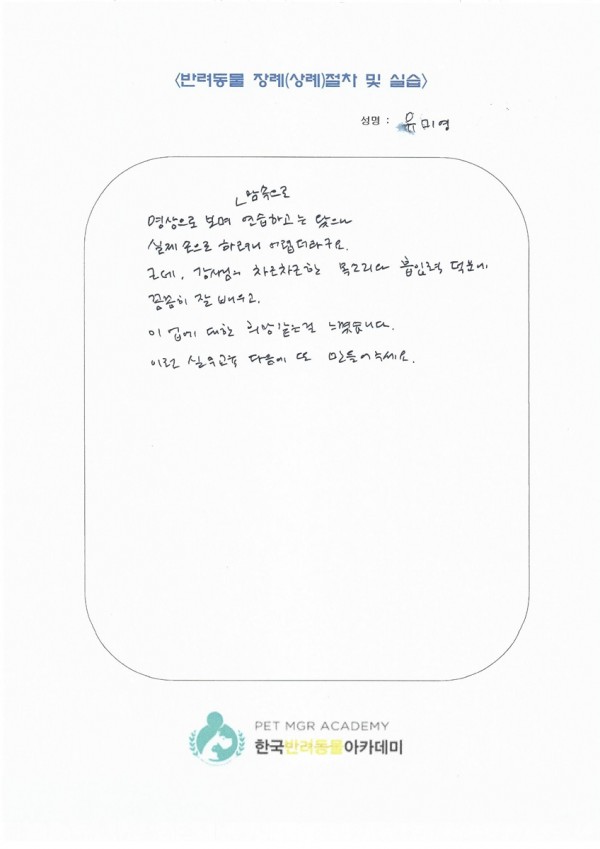 <반려동물 장례(상례)절차 및 실습>
성명 : 유미영
맘속으로
영상으로 보며 연습하고는 왔으나
실제 손으로 하려하니 어렵더라구요.
근데, 강사님의 차근차근한 목소리와 흡입력 덕분에
꼼꼼히 잘 배우고,
이 업에 대한 희망같은걸 느꼈습니다.
이런 실무교육 다음에 또 만들어주세요.
PET MGR ACADEMY
한국반려동물아카데미